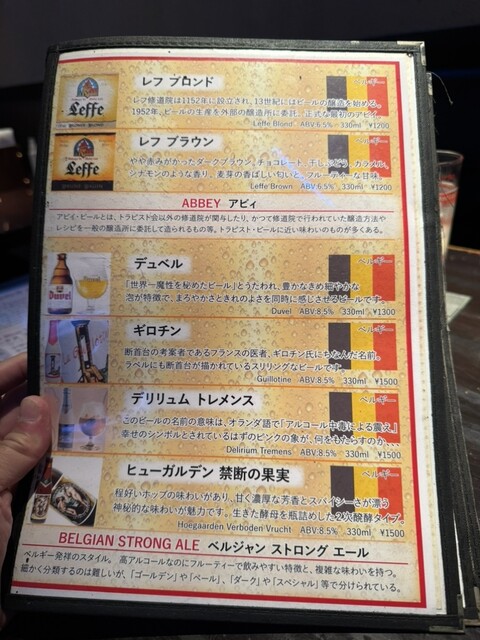 レフ ブロンド
ベルギー
Leffe
レフ修道院は1152年に設立され、13世紀にはビールの醸造を始める。
1952年、ビールの生産を外部の醸造所に委託。正式な最初のアビィ。
Leffe Blond ABV:6.5% 330ml ¥1200
レフ ブラウン
ベルギー
Leffe
やや赤みがかったダークブラウン。チョコレート、干しぶどう、カラメル、
シナモンのような香り。麦芽の香ばしい匂いと、フルーティーな甘味。
Leffe Brown ABV:6.5% 330ml ¥1200
ABBEY アビィ
アビィ・ビールとは、トラピスト会以外の修道院が関与したり、かつて修道院で行われていた醸造方法や
レシピを一般の醸造所に委託して造られるもの等。トラピスト・ビールに近い味わいのものが多くある。
デュベル
ベルギー
Duvel
「世界一魔性を秘めたビール」とうたわれ、豊かなきめ細やかな
泡が特徴で、まろやかさときれのよさを同時に感じさせるビールです。
Duvel ABV:8.5% 330ml ¥1300
ギロチン
ベルギー
断首台の考案者であるフランスの医者、ギロチン氏にちなんだ名前。
ラベルにも断首台が描かれているスリリングなビールです。
Guillotine ABV:8.5% 330ml ¥1500
デリリュム トレメンス
ベルギー
このビールの名前の意味は、オランダ語で「アルコール中毒による震え」
幸せのシンボルとされているはずのピンクの象が、何をもたらすのか、、、
Delirium Tremens ABV:8.5% 330ml ¥1500
ヒューガルデン 禁断の果実
ベルギー
程好いホップの味わいがあり、甘く濃厚な芳香とスパイシーさが漂う
神秘的な味わいが魅力です。生きた酵母を瓶詰めした2次醗酵タイプ。
Hoegaarden Verboden Vrucht ABV:8.5% 330ml ¥1500
BELGIAN STRONG ALE ベルジャン ストロング エール
ベルギー発祥のスタイル。 高アルコールなのにフルーティーで飲みやすい特徴と、複雑な味いを持つ。
細かく分類するのは難しいが、「ゴールデン」や「ペール」、「ダーク」や「スペシャル」等で分けられている。